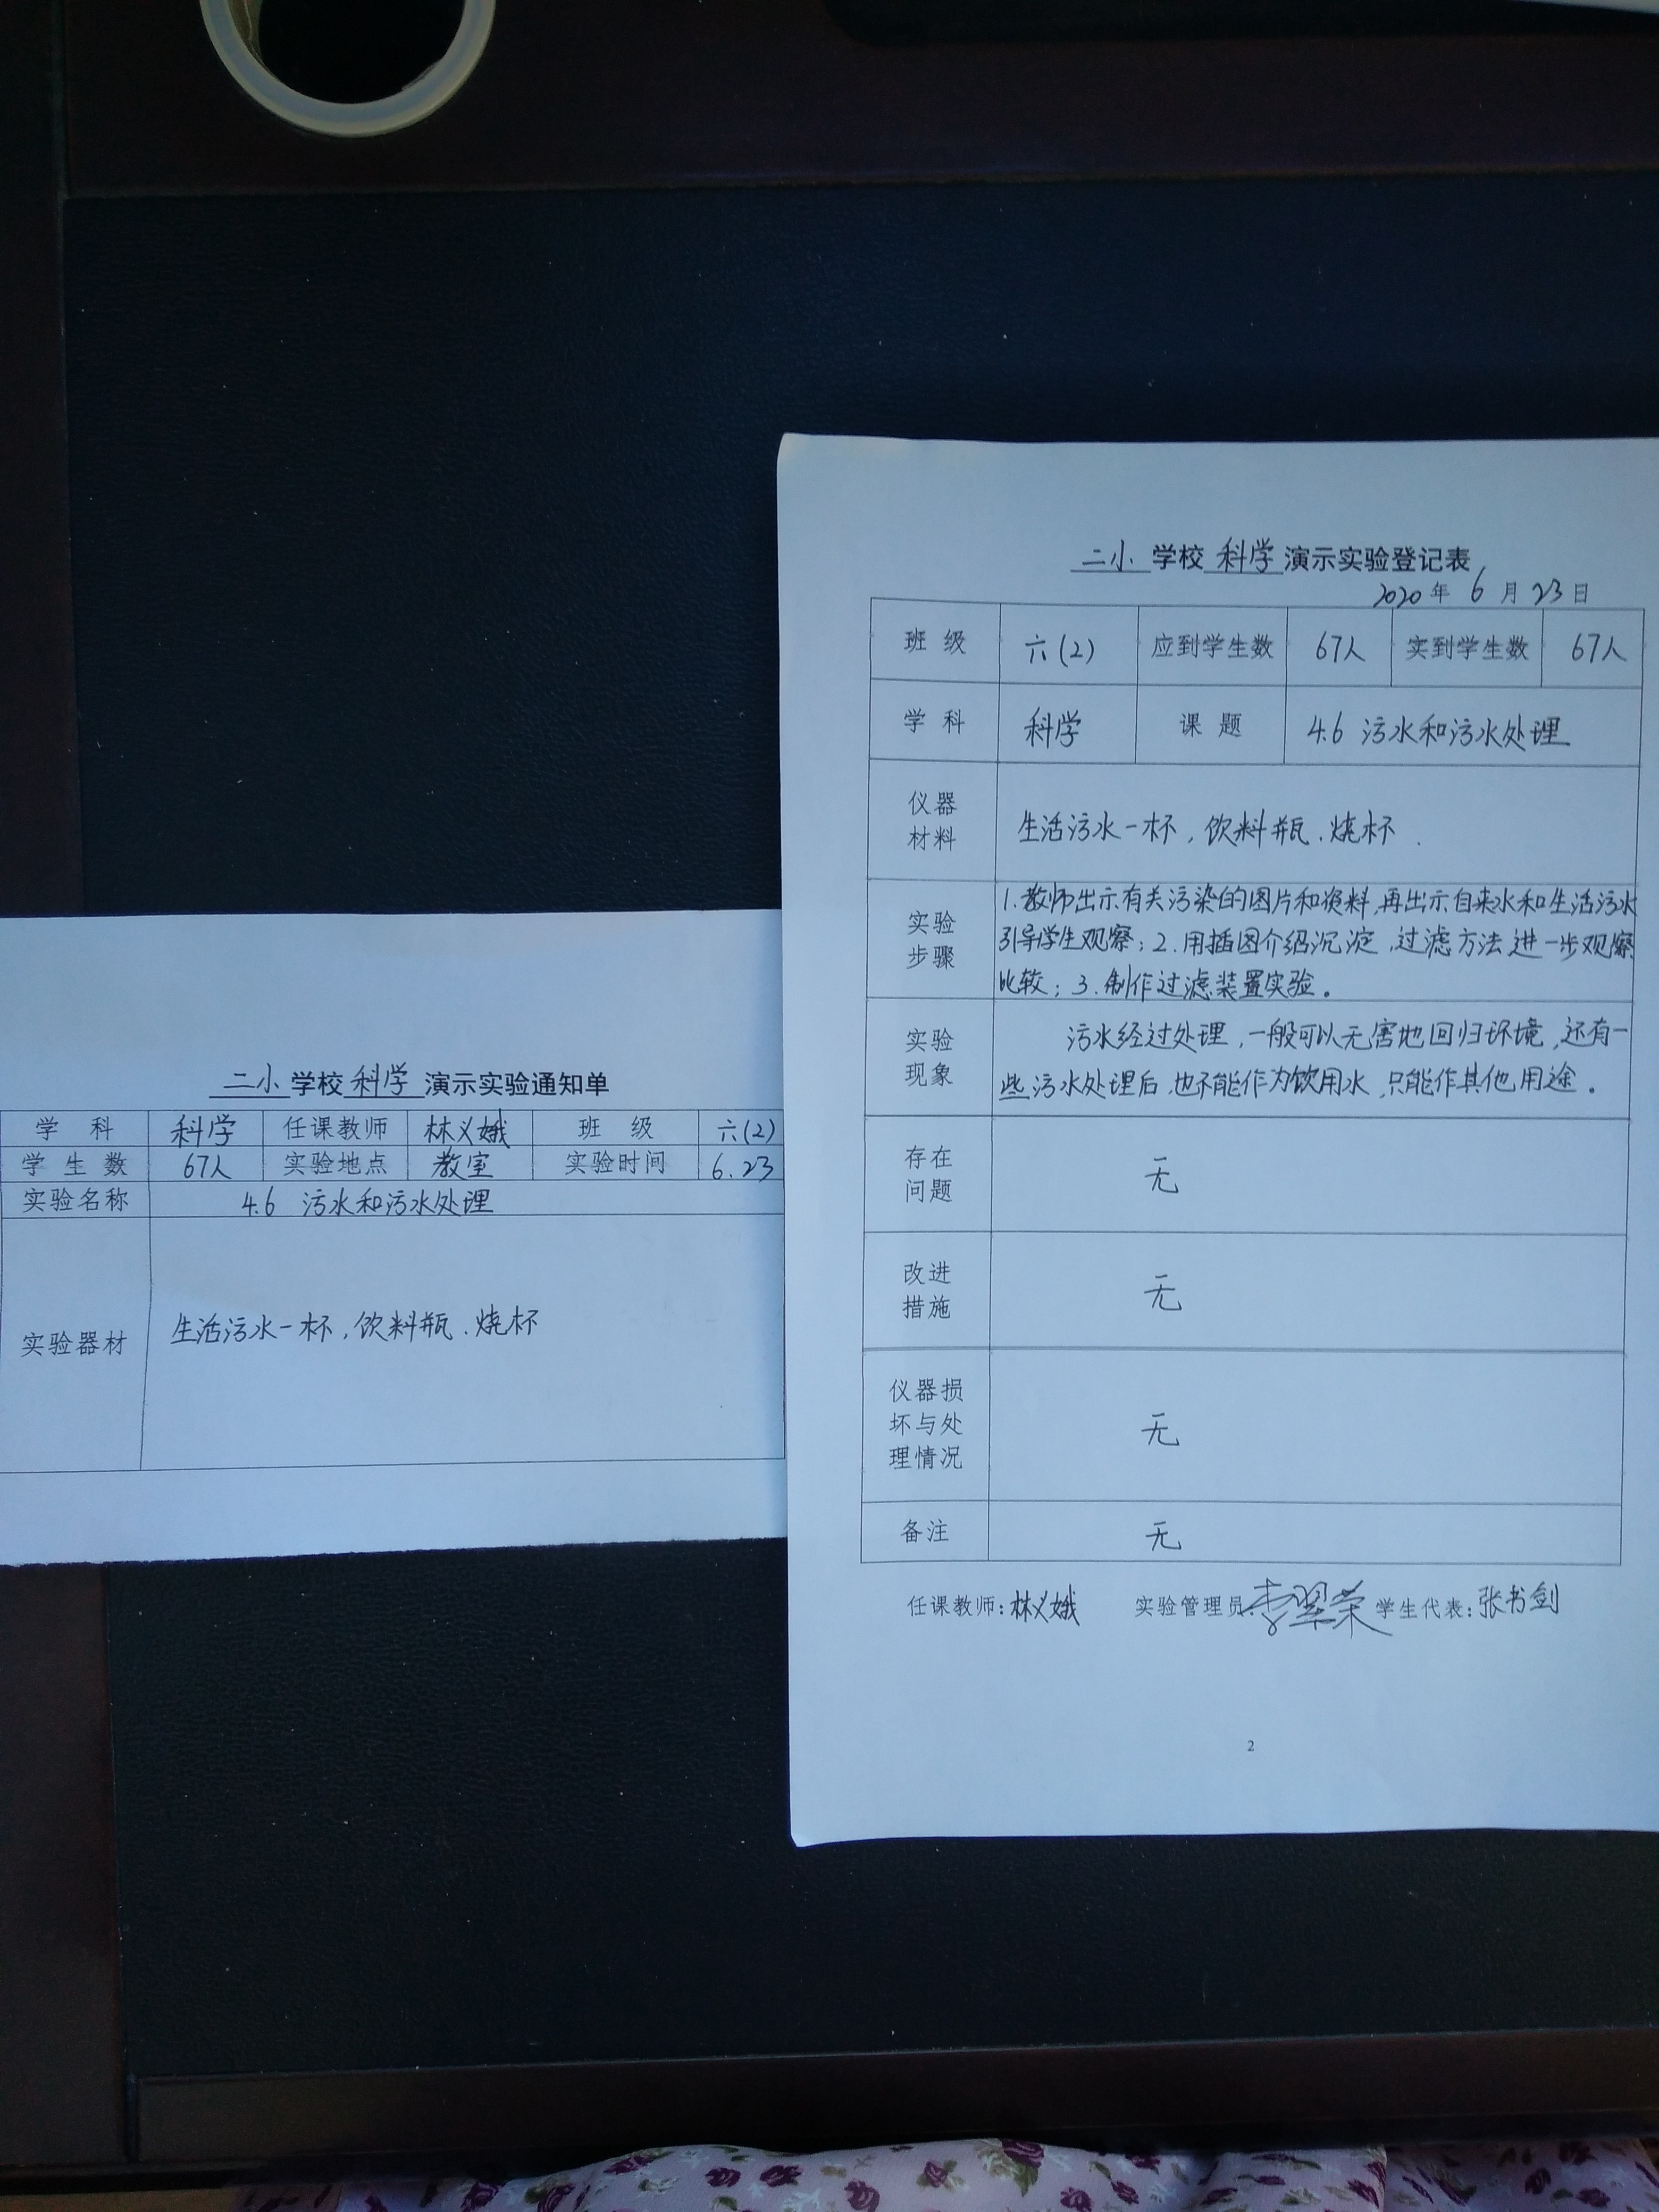 二小学校科学演示实验通知单
学 科 科学 任课教师 林义娥 班 级 六(2)
学 生 数 67人 实验地点 教室 实验时间 6.23
实验名称 4.6 污水和污水处理
实验器材 生活污水一杯,饮料瓶.烧杯
二小学校科学演示实验登记表
2020年6月23日
班 级 六(2) 应到学生数 67人 实到学生数 67人
学 科 科学 课 题 4.6 污水和污水处理
仪器
材料
生活污水一杯,饮料瓶.烧杯.
实验
步骤
1.教师出示有关污染的图片和资料,再出示自来水和生活污水
引导学生观察;2.用插图介绍沉淀,过滤方法进一步观察
比较;3.制作过滤装置实验。
实验
现象
污水经过处理,一般可以无害地回归环境,还有一
些污水处理后,也不能作为饮用水,只能作其他用途。
存在
问题
无
改进
措施
无
仪器损
坏与处
理情况
无
备注 无
任课教师:林义娥 实验管理员:李翠荣 学生代表:张书剑
2